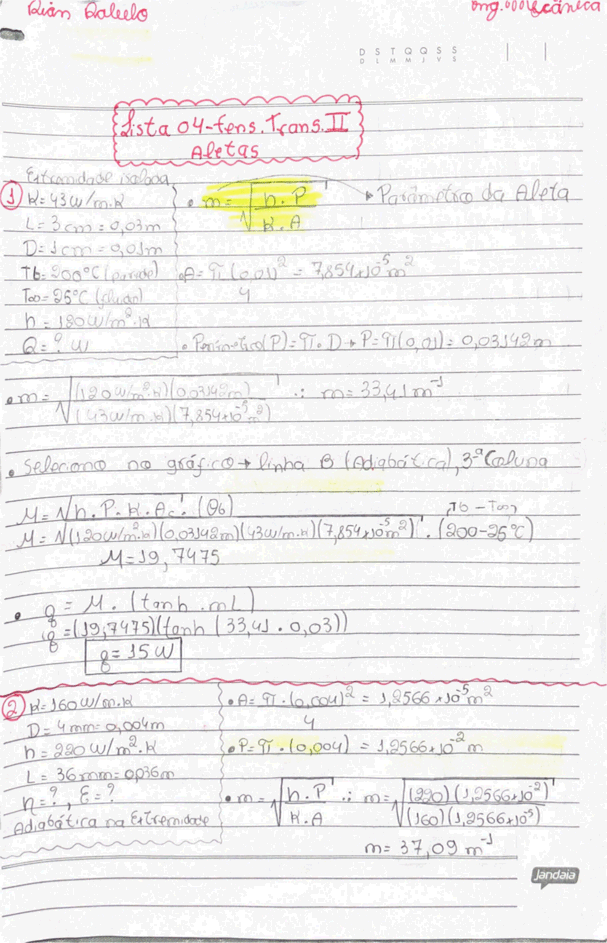 Rian Rabelo
Eng. Mecânica
D S T Q Q S S
D L M M J V S
Lista 04-Fens. Trans. II
Aletas
Extremidade isolada
① K=43W/m.K
L= 3cm=0,03m
D=1cm=0,01m
Tb=200°C (parede)
T∞=25°C (fluido)
h=180W/m².K
Q=? W
• m=√h.P/K.A → Parâmetro da Aleta
• A=π.(0,01)²/4 = 7,854x10⁻⁵m²
• Perímetro(P)=π.D→P=π(0,01)=0,03142m
• m=√(120W/m².k)(0,03142m)/(43W/m.k)(7,854x10⁻⁵m²) ∴ m=33,41m⁻¹
• Seleciono no gráfico→linha B (Adiabática), 3ª Coluna
M=√h.P.K.Ac.(θb)
Tb-T∞
M=√(120W/m².k)(0,03142m)(43W/m.k)(7,854x10⁻⁵m²).(200-25°C)
M=19,7475
• q=M.(tanh.mL)
q=(19,7475)(tanh(33,41.0,03))
q=15W
② K=160W/m.K
D=4mm=0,004m
h=220W/m².K
L=36mm=0,036m
η=?, ε=?
Adiabática na Extremidade
• A=π.(0,004)²/4=1,2566x10⁻⁵m²
• P=π.(0,004)=1,2566x10⁻²m
• m=√h.P/K.A ∴ m=√(220)(1,2566x10⁻²)/(160)(1,2566x10⁻⁵)
m=37,09m⁻¹
jandaia